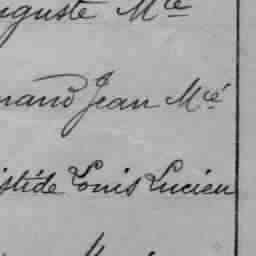 uguste Mie
nand Jean Mcé
istide Louis Lucien